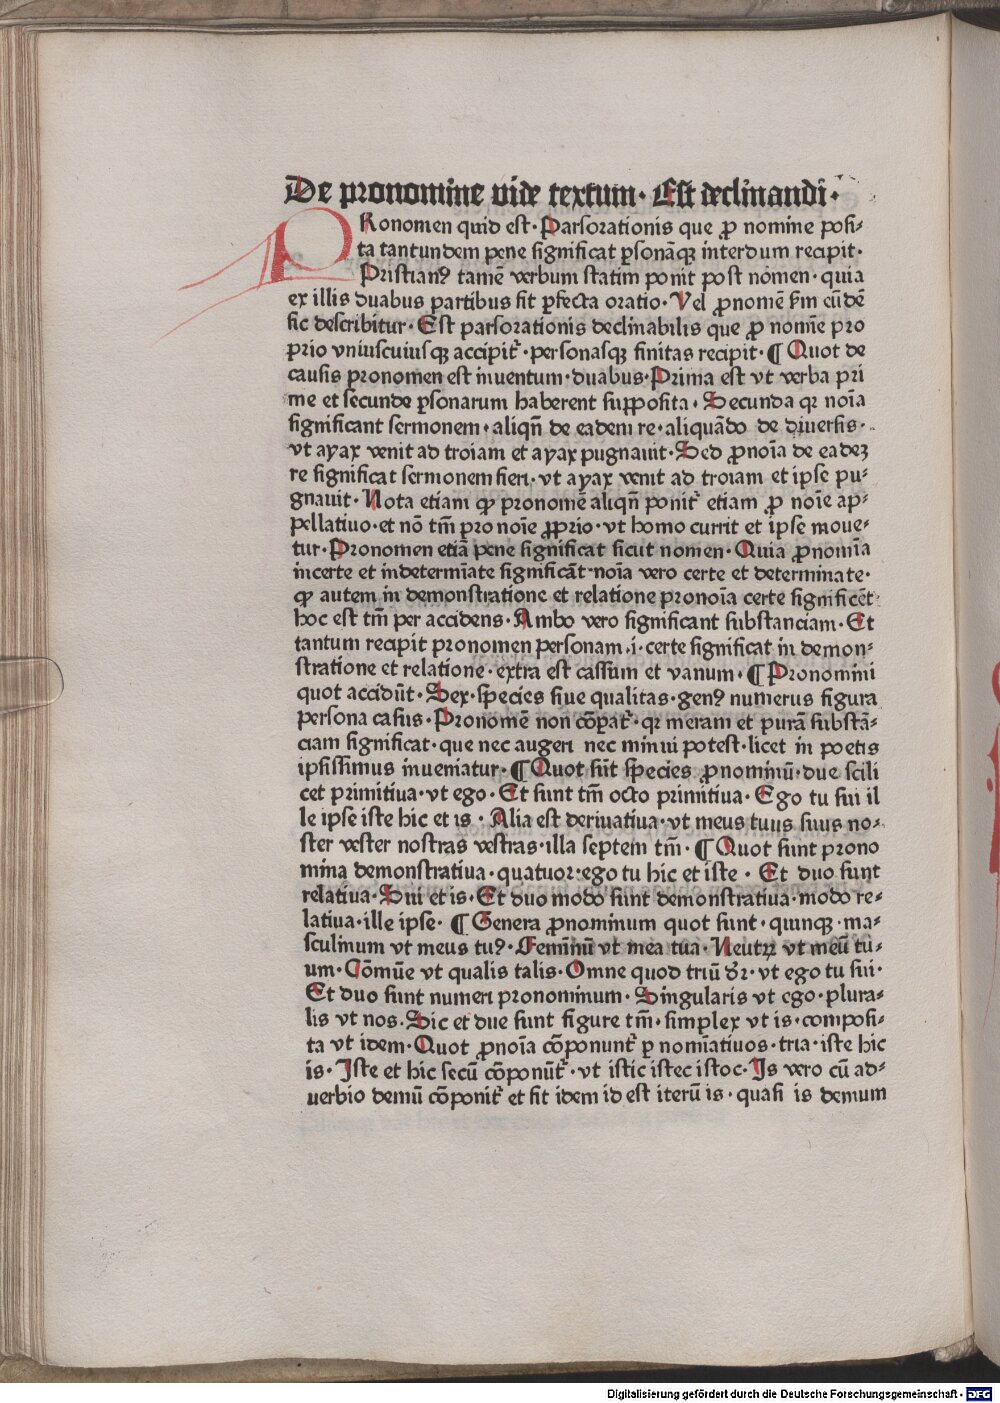 De pronomine vide textum· Est declinandi·
PRonomen quid est· Parsorationis que ꝓ nomine posi⸗
ta tantundem pene significat ꝑsonāqꝫ interdum recipit·
Pristianꝰ tamē verbum statim ponit post nomen· quia
ex illis duabus partibus fit ꝑfecta oratio· Vel ꝓnomē ẜm eūdē
sic describitur· Est parsorationis declinabilis que ꝓ nomīe pro
prio vniuscuiusqꝫ accipit᷑·personasqꝫ finitas recipit·¶ Quot de
causis pronomen est inuentum·duabus·Prima est vt verba pri
me et secunde ꝑsonarum haberent supposita· Secunda qꝛ noīa
significant sermonem·aliqñ de eadem re·aliquādo de diuersis·
vt ayax venit ad troiam et ayax pugnauit·Sed ꝓnoīa de eadeꝫ
re significat sermonem fieri·vt ayax venit ad troiam et ipse pu⸗
gnauit· Nota etiam ꝙ pronomē aliqñ ponit᷑ etiam ꝓ noīe ap⸗
pellatiuo·et nō tm̄ pro noīe ꝓprio·vt homo currit et ipse moue⸗
tur·Pronomen etiā pene significat sicut nomen· Quia ꝓnomīa
incerte et indetermīate significāt·noīa vero certe et determinate·
ꝙ autem in demonstratione et relatione pronoīa certe significēt
hoc est tm̄ per accidens· Ambo vero significant substanciam· Et
tantum recipit pronomen personam·i·certe significat in demon⸗
stratione et relatione·extra est cassum et vanum·¶ Pronomini
quot accidūt· Sex·species siue qualitas·genꝰ numerus figura
persona casus·Pronomē non cōpat᷑·qꝛ meram et purā substā⸗
ciam significat·que nec augeri nec minui potest·licet in poetis
ipsissimus inueniatur·¶Quot sūt species ꝓnominū·due scili
cet primitiua·vt ego· Et sunt tm̄ octo primitiua· Ego tu sui il
le ipse iste hic et is· Alia est deriuatiua·vt meus tuus suus no⸗
ster vester nostras vestras·illa septem tm̄·¶ Quot sunt prono
mina demonstratiua·quatuor:ego tu hic et iste· Et duo sunt
relatiua·Sui et is·Et duo modo sunt demonstratiua·modo re⸗
latiua·ille ipse·¶Genera ꝓnominum quot sunt·quinqꝫ·ma⸗
sculinum vt meus tuꝰ·Feminīnū vt mea tua·Neutꝝ vt meū tu⸗
um·Cōmūe vt qualis talis·Omne quod triū dꝛ·vt ego tu sui·
Et duo sunt numeri pronominum·Singularis vt ego·plura⸗
lis vt nos·Sic et due sunt figure tm̄·simplex vt is·composi⸗
ta vt idem·Quot ꝓnoīa cōponunt᷑ ꝑ nomīatiuos·tria·iste hic
is·Iste et hic secū cōponūt᷑·vt istic istec istoc·Is vero cū ad⸗
uerbio demū cōponit᷑ et fit idem id est iterū is·quasi is demum
Digitalisierung gefördert durch die Deutsche Forschungsgemeinschaft - DFG